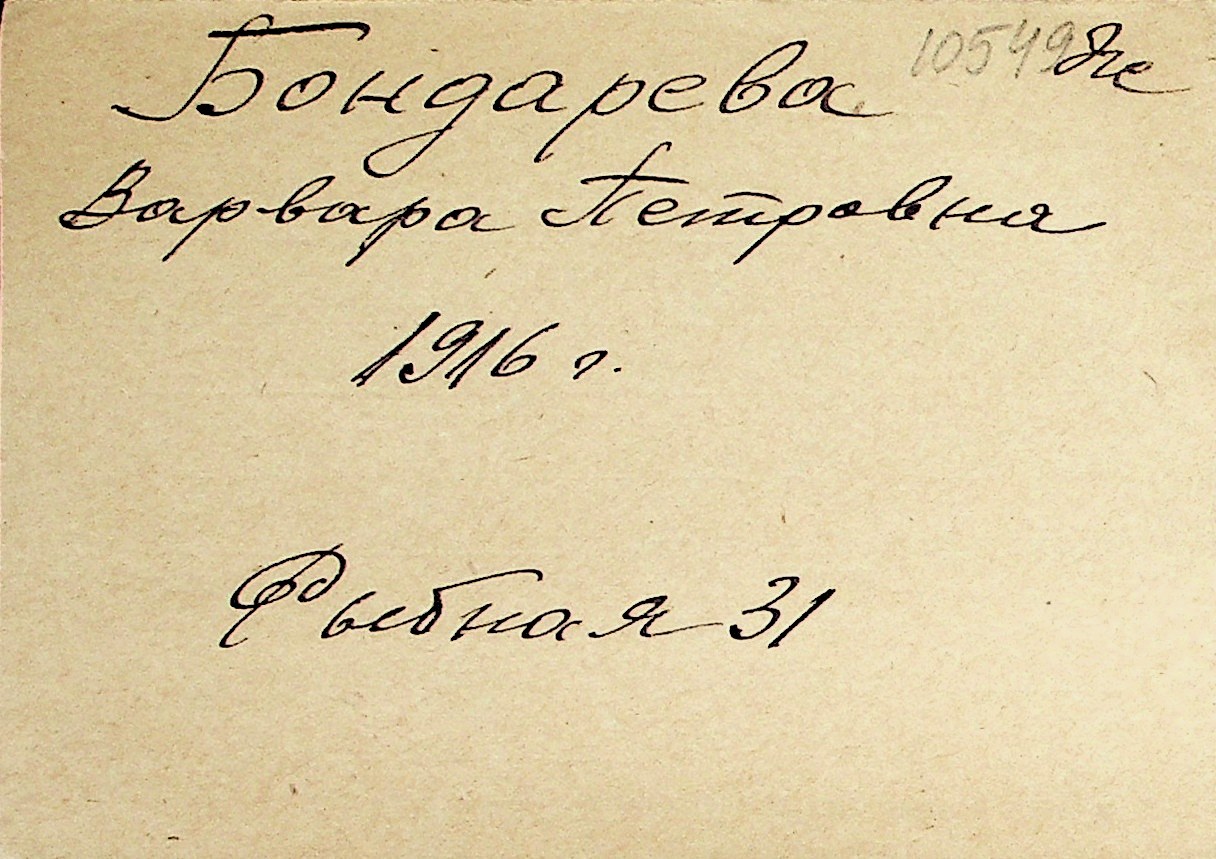 Бондарева 10549
Варвара Петровна
1916 г.
Рыбная 31